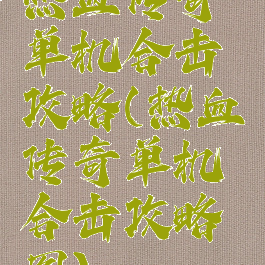 热血传奇
单机合击
攻略(热血
传奇单机
合击攻略
图)